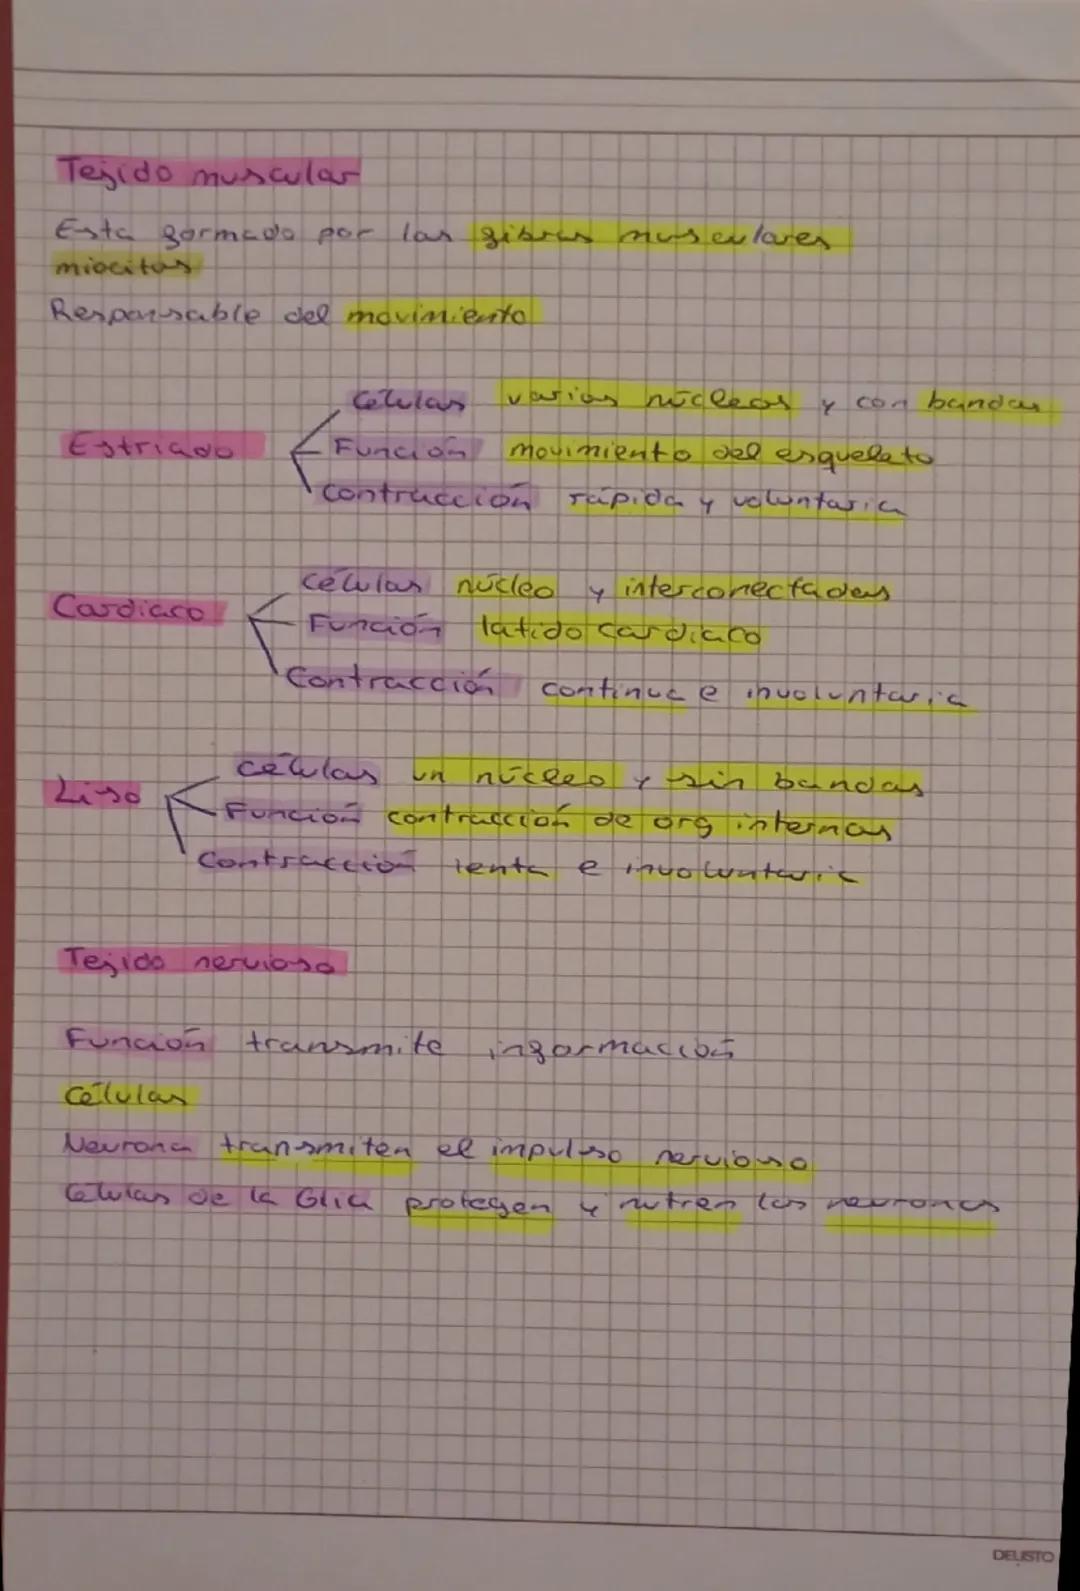 Tejido muscular
Esta formado por las fibras musculares
miocitos
Responsable del movimiento
Células varios núcleos y con bandas
Estriado Función movimiento del esqueleto
contracción rápida y voluntaria
Células núcleo y interconectadas
Cardiaco Función latido cardiaco
Contracción continua e involuntaria
células un núcleo y sin bandas
Liso Función contracción de org internos
Contracción lenta e involuntaria
Tejido nervioso
Función transmite información
Células
Neurona transmiten el impulso nervioso
Células de la Glia protegen y nutren las neuronas
DELISTO